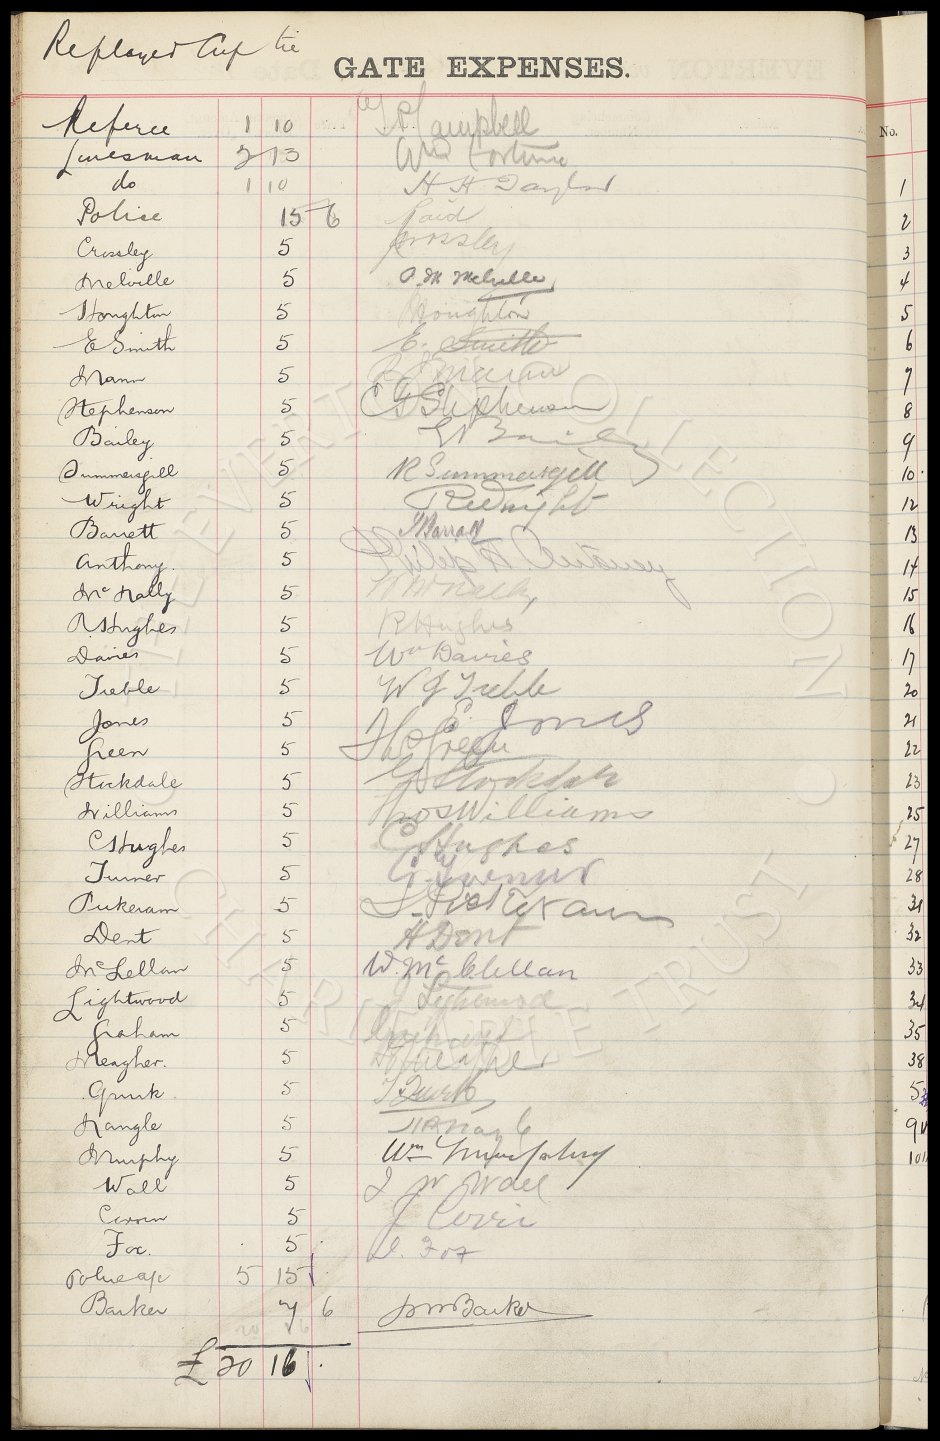 Replayed Cup tie
GATE EXPENSES.
Referee 1 10 Campbell
Linesman 2 13 Wm Fortune
do 1 10 H H Taylor
Police 15 6 Paid
Crossley 5 Crossley
Melville 5 Melville
Houghton 5 Houghton
E Smith 5 E. Smith
Mann 5 Mann
Stephenson 5 Stephenson
Bailey 5 Bailey
Summersgill 5 R Summersgill
Wright 5 R Wright
Barrett 5 Barratt
Anthony. 5 Philip Antony
Mc Nally 5 McNally
R. Hughes 5 R Hughes
Davies 5 Wm Davies
Treble 5 W J Treble
Jones 5 E. Jones
Green 5 Thos Green
Stockdale 5 Stockdale
Williams 5 Thos Williams
C Hughes 5 C Hughes
Turner 5 Turner
Pickeram 5
Dent 5 H Dent
McLellan 5 W. McClellan
Lightwood 5 Lightwood
Graham 5 Graham
Meagher. 5 Meagher
Quirk 5 Quirk
Nangle 5 Nagle
Murphy 5 Wm Murphy
Wall 5 J W Wall
5 J
Fox. 5 Fox
Police a/c 5 15
Barker 7 6 Barker
£ 20 16 .
No.
1
2
3
4
5
6
7
8
9
10
12
13
14
15
16
17
20
21
22
23
25
27
28
31
32
33
34
35
38
THE EVERTON COLLECTION CHARITABLE TRUST